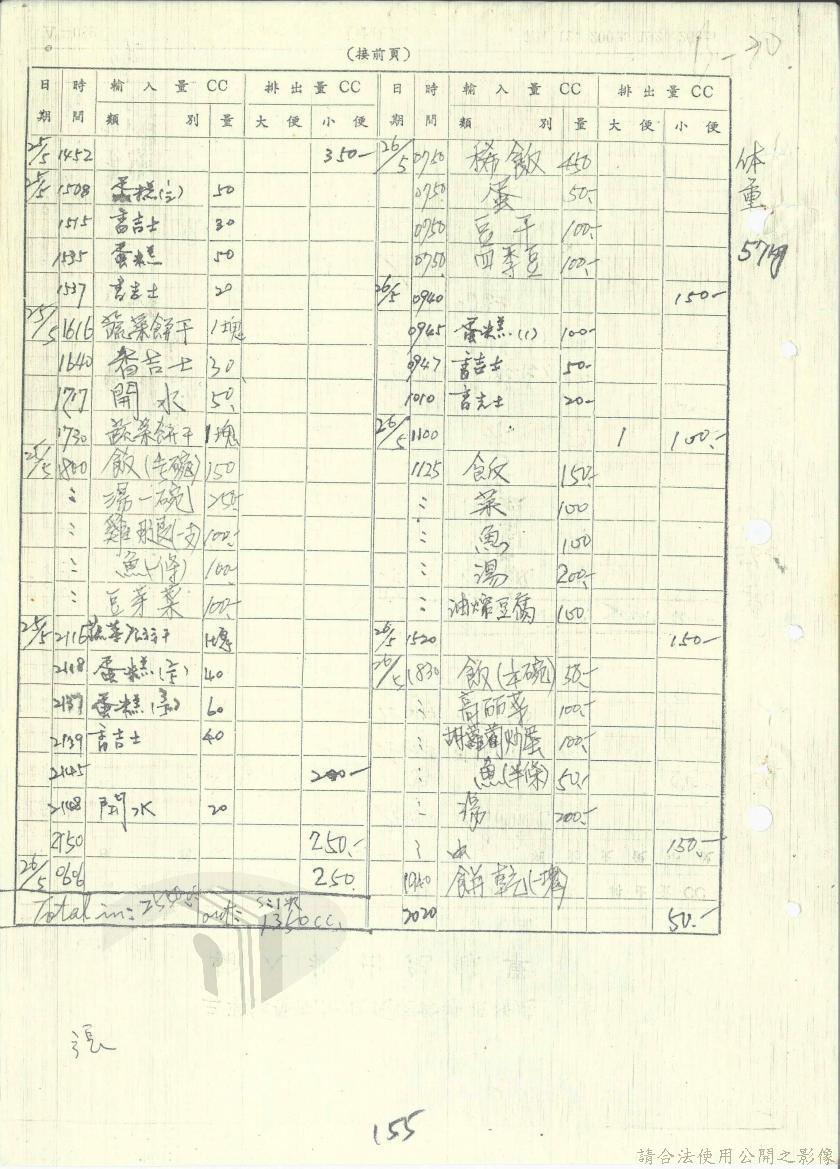 (接前頁)
日期 時間 輸入量CC 類別 量 排出量CC 大便 小便
25/5 1452 350-
25/5 1508 蛋糕 50
1515 吉士 30
1535 蛋糕 50
1537 吉士 20
25/5 1616 蔬菜餅干 1塊
1640 吉士 30
1717 開水 50
1730 蔬菜餅干 1塊
25/5 1800 飯(半碗) 150
: 湯一碗 250-
: 雞腿(一支) 100-
: 魚(一條) 100-
: 豆芽菜 100-
25/5 2116 蔬菜餅干 1塊
2118 蛋糕 40
2137 蛋糕 60
2139 吉士 40
2145 200-
2148 開水 20
2150 250-
26/5 0606 250
Total in: out: 1350CC
日期 時間 輸入量CC 類別 量 排出量CC 大便 小便
26/5 0750 稀飯 450
0750 蛋 50-
0750 豆干 100-
0750 四季豆 100-
26/5 0940 150-
0945 蛋糕(1) 100-
0947 吉士 50-
1010 吉士 20-
26/5 1100 1 100-
1125 飯 150-
: 菜 100
: 魚 100
: 湯 200-
: 油豆腐 100
26/5 1520 150-
26/5 1830 飯(半碗) 50-
: 高丽菜 100-
: 胡蘿蔔炒蛋 100-
: 魚(半條) 50-
: 湯 200-
: 150-
1940 餅乾(一塊)
2020 50-
体重 57kg
張
155
請合法使用公開之影像